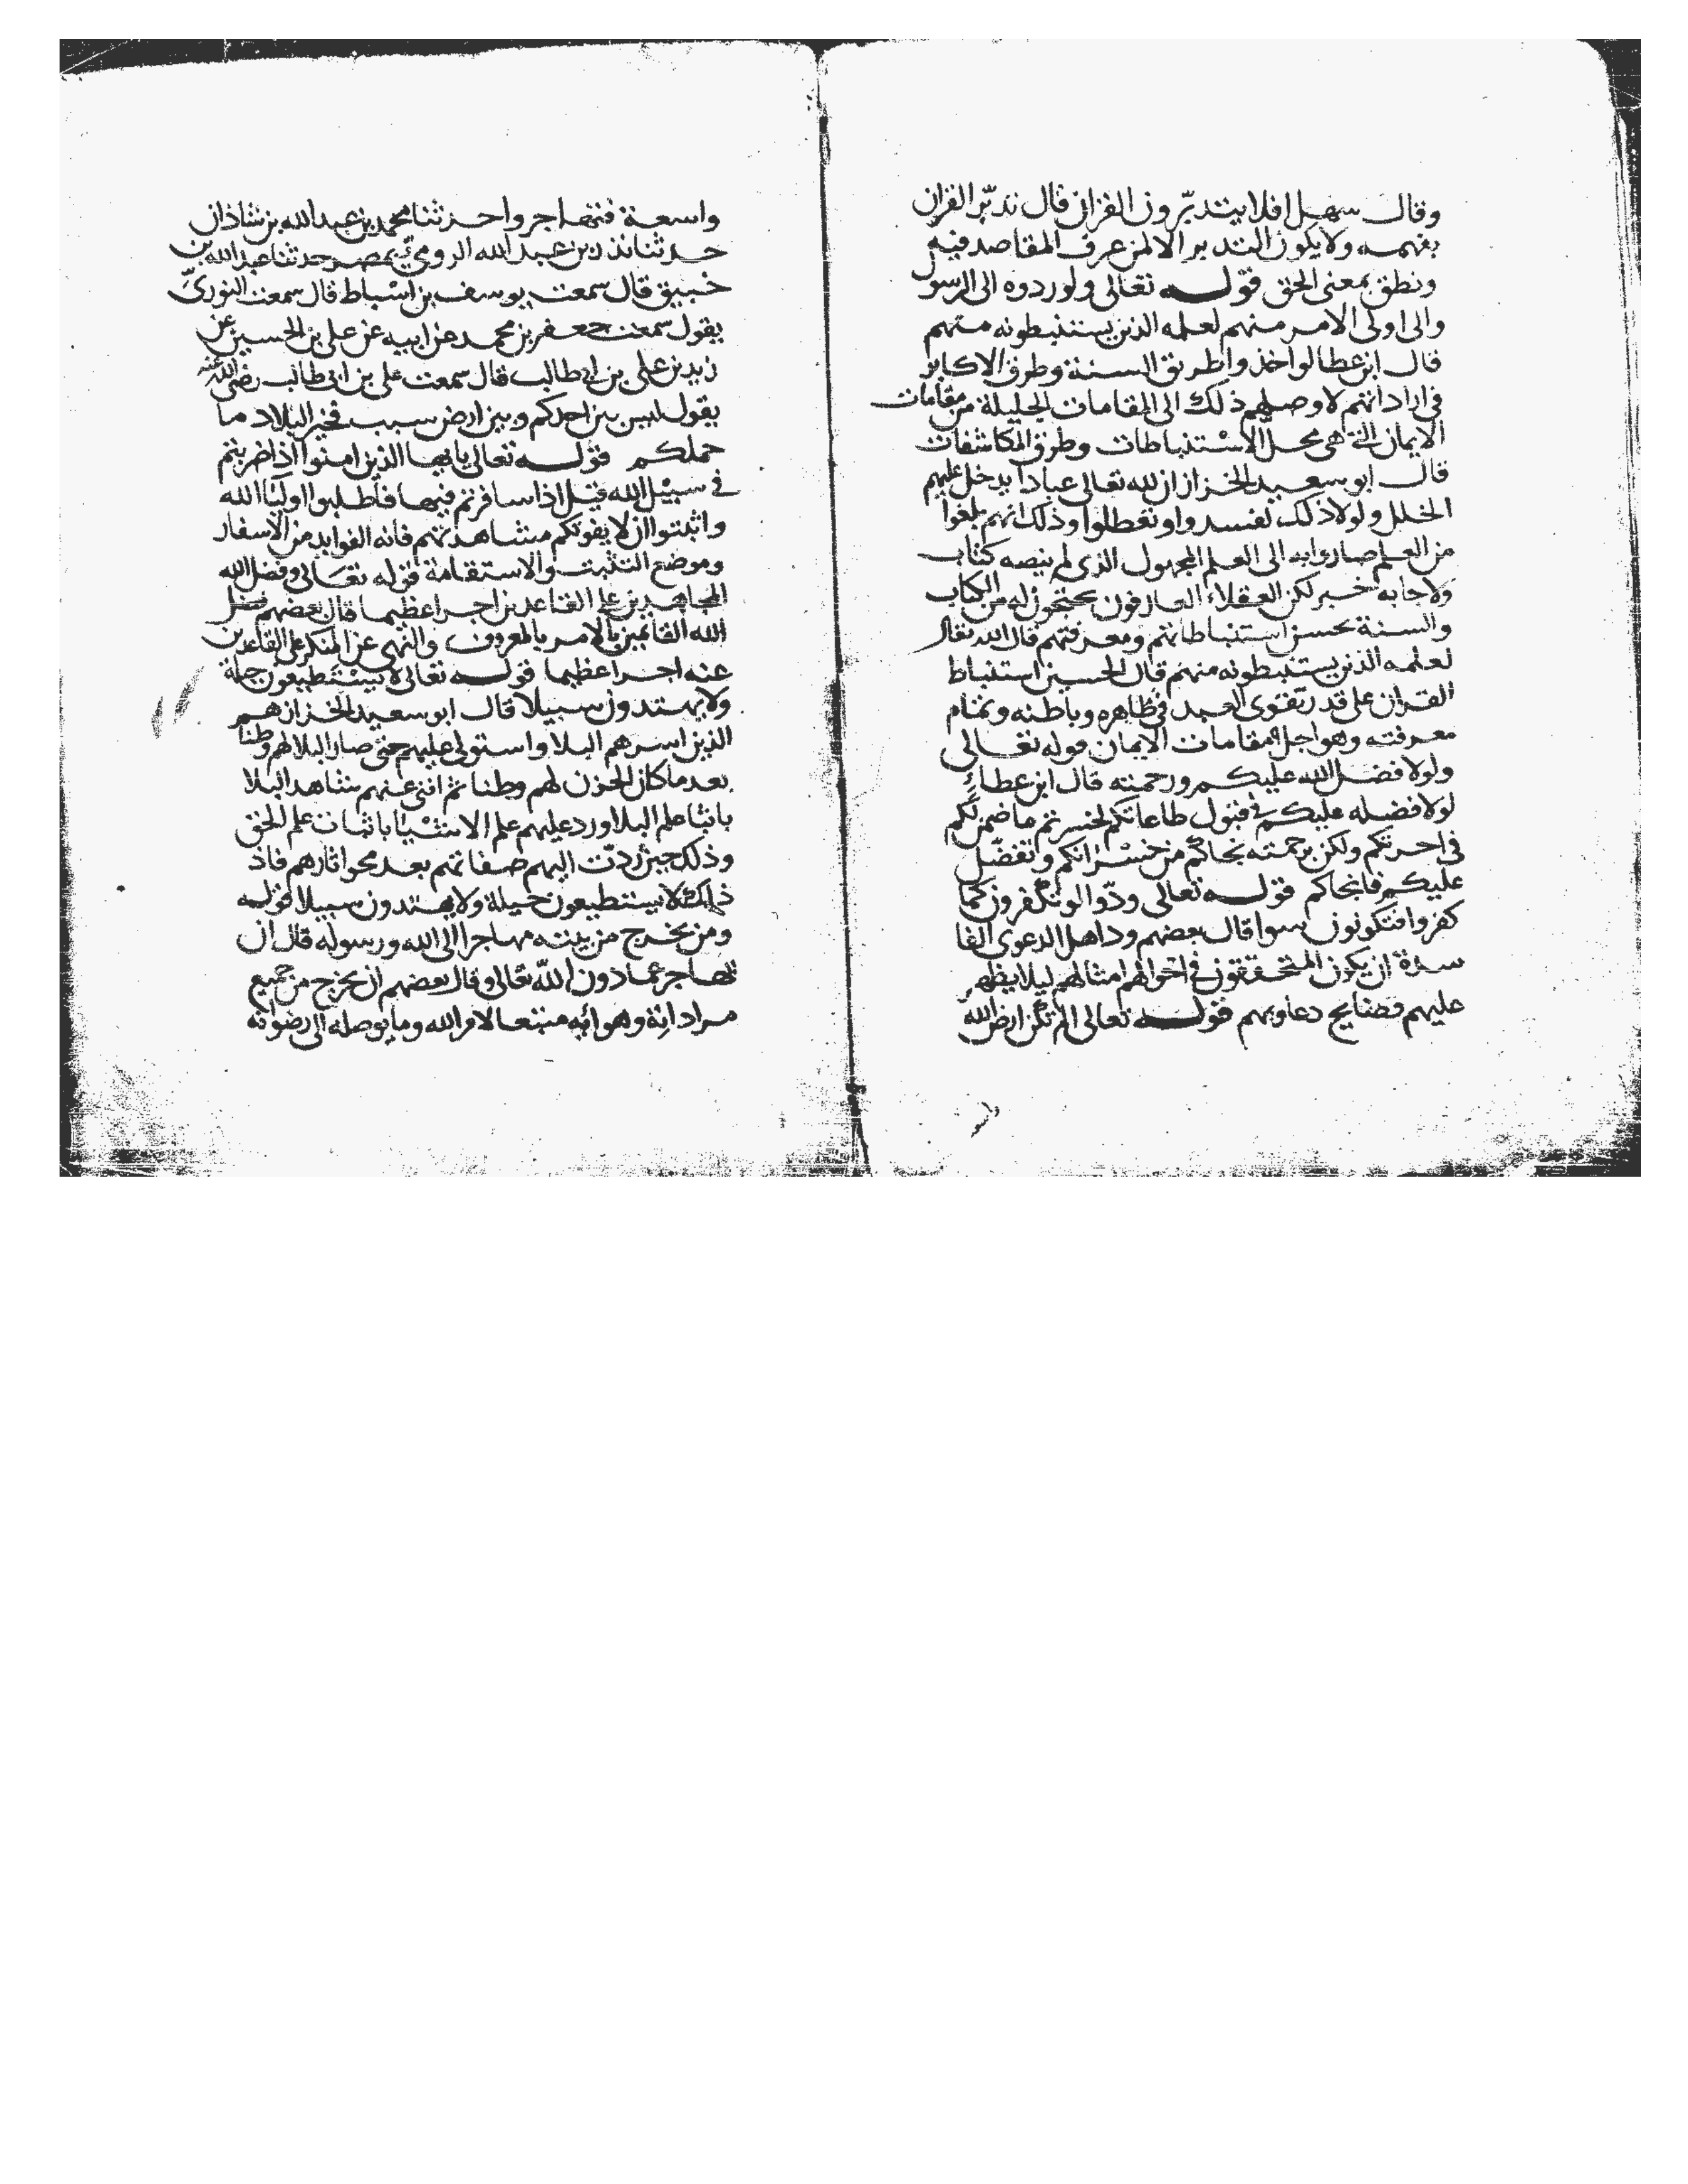 وقال سهل افلا يتدبّرون القران قال تدبّر القران
بفهمه ولا يكون التدبر الا لمن عرف المقاصد فيه
ونطق بمعنى الحق قوله تعالى ولو ردوه الى الرسول
والى اولى الامر منهم لعلمه الذين يستنبطونه منهم
قال ابن عطا لو اخذوا طريق السنة وطرق الاكابر
فى اراداتهم لاوصلهم ذلك الى المقامات الجليلة من مقامات
الايمان التى هى محلّ الاستنباطات وطرق المكاشفات
قال ابو سعيد الخزاز ان لله تعالى عبادا يدخل عليهم
الخلل ولولا ذلك لفسدوا وتعطلوا وذلك انهم بلغوا
من العلم صاروا به الى العلم المجهول الذى لم ينصه كتاب
ولا جابه خبر لكن العقلاء العارفون يحتجون له من الكتاب
والسنة بحسن استنباطاتهم ومعرفتهم قال الله تعالى
لعلمه الذين يستنبطونه منهم قال الحسين استنباط
القران على قدر تقوى العبد فى ظاهره وباطنه وتمام
معرفته وهو اجل مقامات الايمان قوله تعالى
ولولا فضل الله عليكم ورحمته قال ابن عطاء
لولا فضله عليكم فى قبول طاعاتكم لخسرتم ما ضمن لكم
فى اخرتكم ولكن برحمته نجاكم من خسرانكم وتفضّل
عليكم فانجاكم قوله تعالى ودّوا لو تكفرون كما
كفروا فتكونون سوا قال بعضهم ود اهل الدعوى الفا
سدة ان يكون المتحققون فى احوالهم امثالهم ليلا يظهر
عليهم فضايح دعاويهم قوله تعالى الم تكن ارض الله
واسعة فتهاجروا حدثنا محمد بن عبد الله بن شاذان
حدثنا بن عبد الله الرومىّ بمصر حدثنا عبد الله بن
خبيق قال سمعت يوسف بن اسباط قال سمعت الثورىّ
يقول سمعت جعفر بن محمد عن ابيه عن على بن الحسين عن
زيد بن على بن ابى طالب قال سمعت على بن ابى طالب رضى الله عنه
يقول ليس بين احدكم وبين ارض سبب فخير البلاد ما
حملكم قوله تعالى يايها الذين امنوا اذا ضربتم
فى سبيل الله قيل اذا سافرتم فيها فاطلبوا اوليا الله
واثبتوا ان لا يفوتكم مشاهدتهم فانه الفوايد من الاسفار
وموضع التثبت والاستقامة قوله تعالى وفضل الله
المجاهدين على القاعدين اجرا عظيما قال بعضهم فضل
الله القائمين بالامر بالمعروف والنهى عن المنكر على القاعدين
عنه اجرا عظيما قوله تعالى لا يستطيعون حيلة
ولا يهتدون سبيلا قال ابو سعيد الخزاز هم
الذين اسرهم البلا واستولى عليهم حتى صار البلا لهم وطنا
بعد ما كان الحزن لهم وطنا ثم افنى عنهم مشاهد البلا
باثبا علم البلا ورد عليهم علم الاشيا باثبات علم الحق
وذلك حين ردّت اليهم صفاتهم بعد محو اثارهم فاذ
ذلك لا يستطيعون حيلة ولا يهتدون سبيلا قوله
ومن يخرج من بيته مهاجرا الى الله ورسوله قال ان
تهاجر عما دون الله تعالى وقال بعضهم ان يخرج من جميع
مراداته وهوائه متبعا لامر الله وما يوصله الى رضوانه